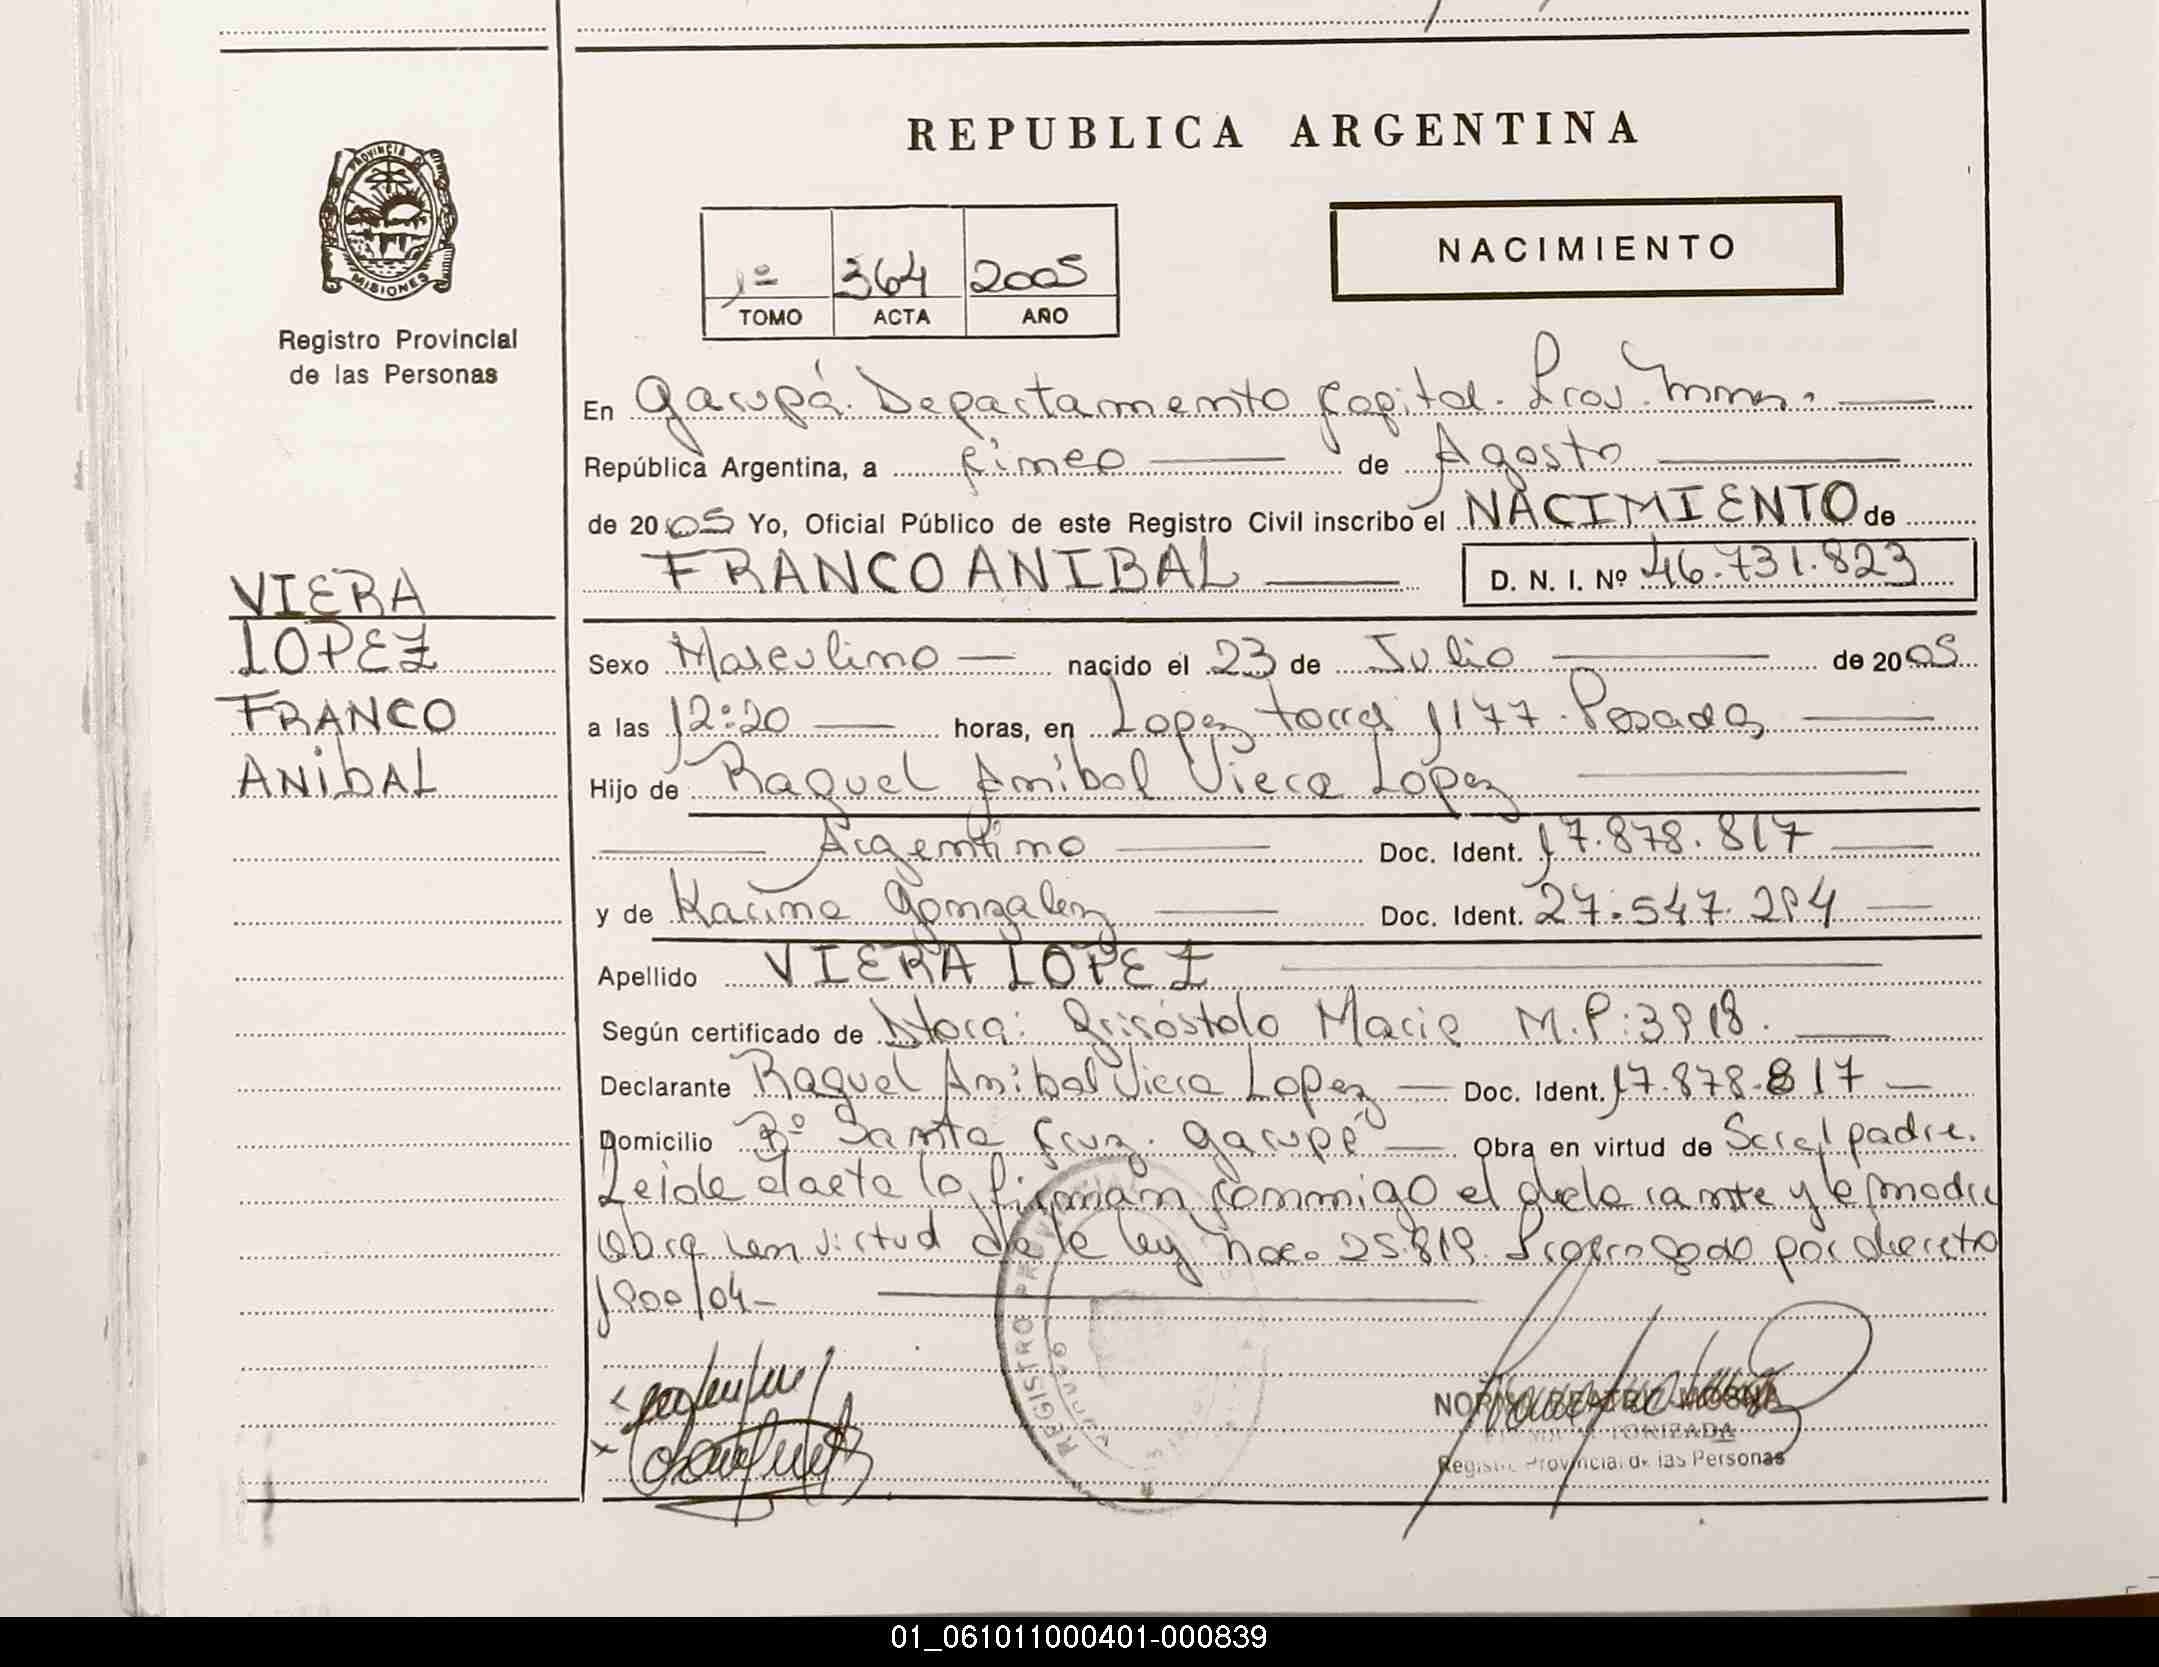 REPUBLICA ARGENTINA
PROVINCIA DE
MISIONES
Registro Provincial
de las Personas
1º 364 2005
TOMO ACTA AÑO
NACIMIENTO
En Garupá. Departamento Capital. Prov. Mnes.
República Argentina, a Cinco de Agosto
de 2005 Yo, Oficial Público de este Registro Civil inscribo el NACIMIENTO de
FRANCO ANIBAL D. N. I. Nº 46.731.823
VIERA
LOPEZ
FRANCO
ANIBAL
Sexo Masculino nacido el 23 de Julio de 2005
a las 12:20 horas, en Lopez Torres 1177. Posadas
Hijo de Raquel Anibal Viera Lopez
Argentino Doc. Ident. 17.878.817
y de Karina Gonzalez Doc. Ident. 27.547.294
Apellido VIERA LOPEZ
Según certificado de Dtora: Grisóstolo Marie M.P: 3918.
Declarante Raquel Anibal Viera Lopez Doc. Ident. 17.878.817
Domicilio Bº Santa Cruz. Garupá Obra en virtud de Ser el padre.
Leida el acta la firman conmigo el declarante y la madre
Obra en virtud de la ley nro. 25.819. Prorrogado por decreto
1900/04-
REGISTRO PROVINCIAL
NORMA BEATRIZ
AUTORIZADA
Registro Provincial de las Personas
01_061011000401-000839